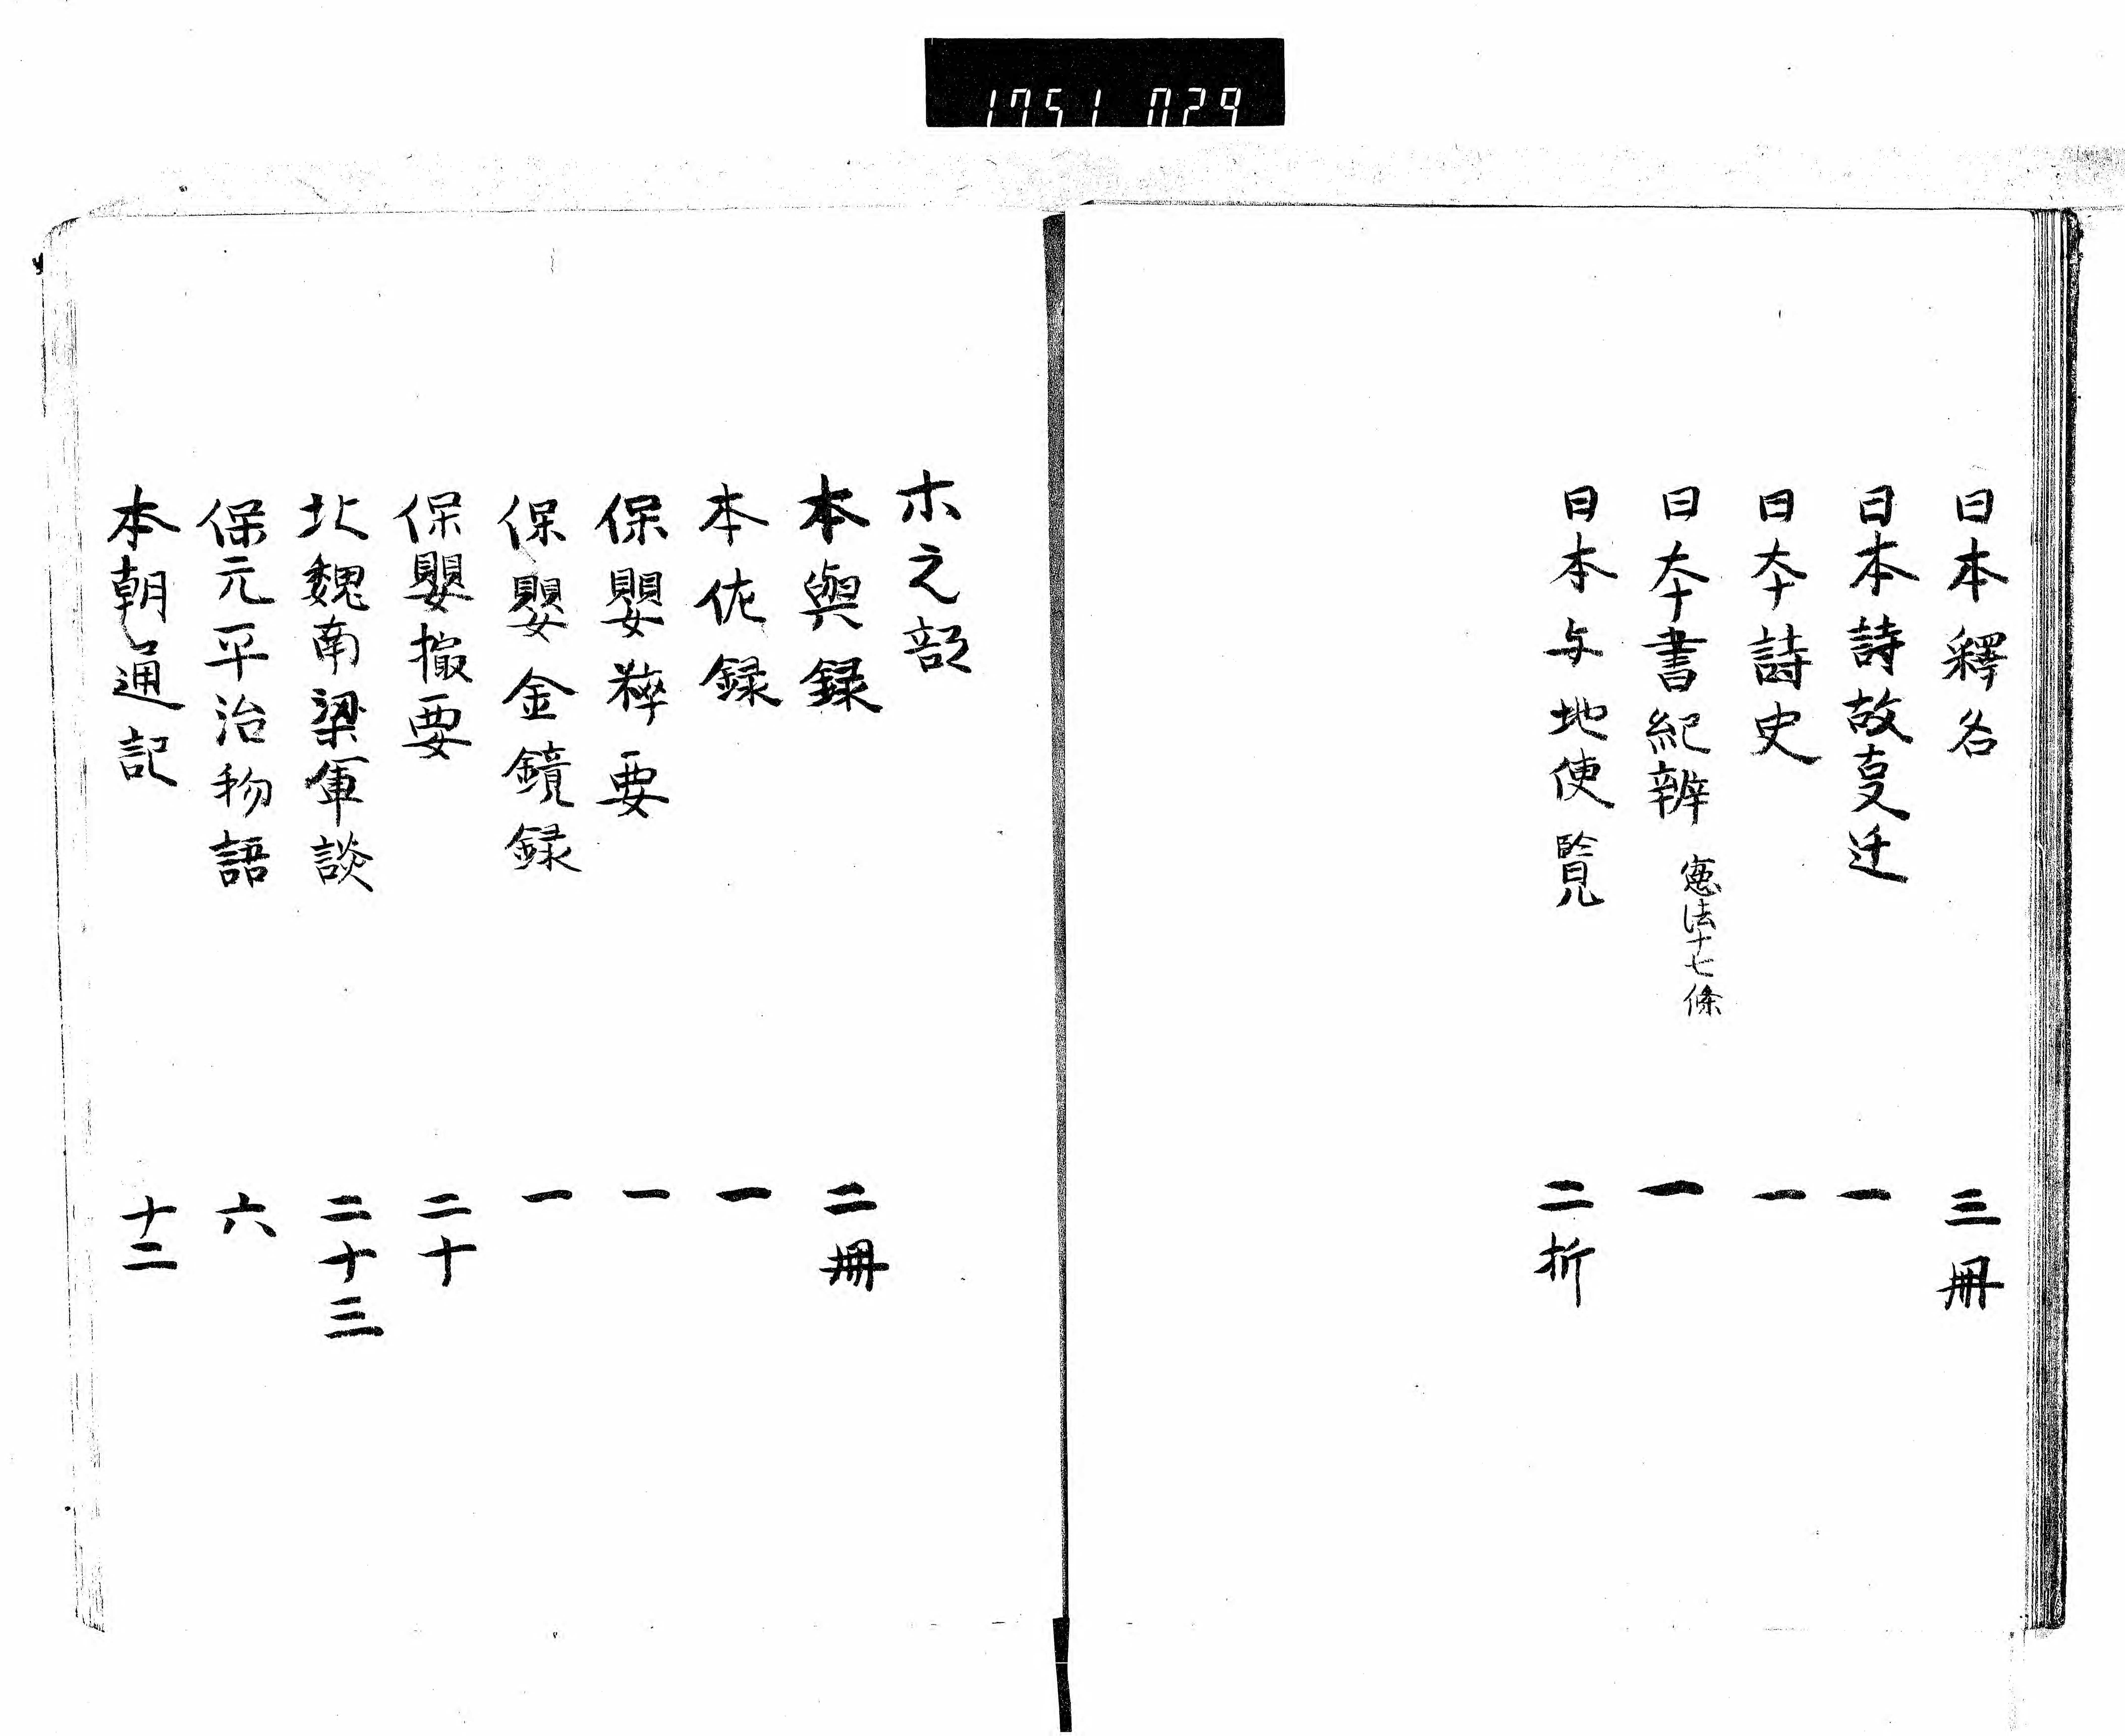 1751 029
日本釋名 三冊
日本詩故変迁 一
日夲詩史 一
日夲書紀辨 憲法十七條 一
日本与地使覧 二折
ホ之部
本與録 二冊
本佐録 一
保嬰粹要 一
保嬰金鏡録 一
保嬰撮要 二十
北魏南梁軍談 二十三
保元平治物語 六
本朝通記 十二